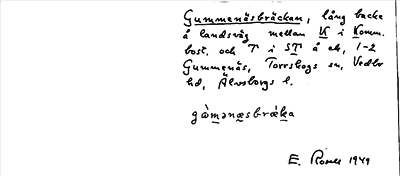 Gummenäsbräckan, lång backe
å landsväg mellan K i Komm.
bost. och T i ST å ek, 1-2
Gummenäs, Torrskogs sn, Vedbo
hd, Älvsborgs l.
gàmənæsbrǽka
E. Rosell 1949